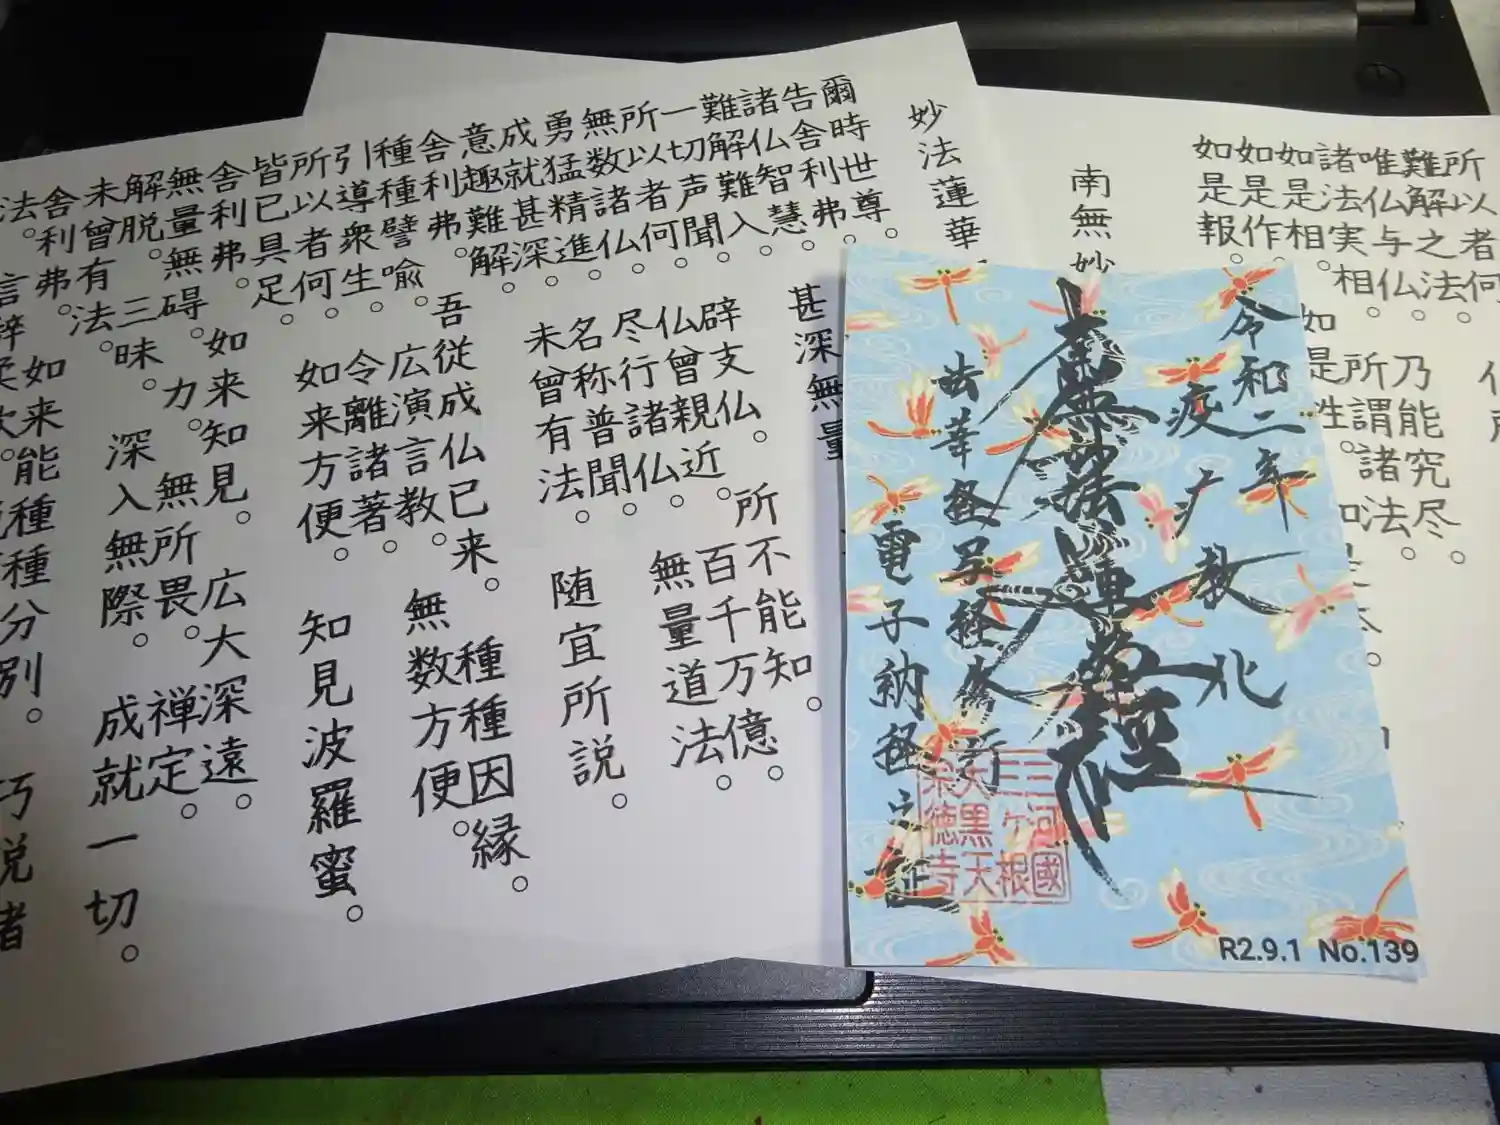 所以者何
難解之法。乃能究尽。
唯仏与仏。
諸法実相。所謂諸法。
如是相。如是性。
如是作。
如是報。
南無妙
令和二年
疫
教化
南無妙法蓮華経
法華経写経修行
電子納経之証
三河國
三ヶ根
大黒天
栄徳寺
R2.9.1 No.139
妙法蓮華
爾時世尊。
告舎利弗。
諸仏智慧。甚深無量
難解難入。
一切声聞。辟支仏。所不能知。
所以者何。仏曾親近。百千万億。
無数諸仏。尽行諸仏。無量道法。
勇猛精進。名称普聞。
成就甚深。未曾有法。随宜所説。
意趣難解。
舎利弗。吾従成仏已来。種種因縁。
種種譬喩。広演言教。無数方便。
引導衆生。令離諸著。
所以者何。如来方便。知見波羅蜜。
皆已具足。
舎利弗。如来知見。広大深遠。
無量無碍。力。無所畏。禅定。
解脱。三昧。深入無際。成就一切。
未曾有法。
舎利弗。如来能種種分別。巧説者
法。言辞柔軟